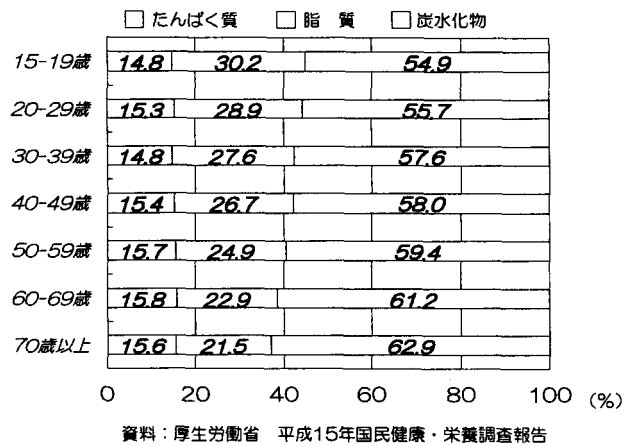 □たんぱく質 □脂 質 □炭水化物
15-19歳 14.8 30.2 54.9
20-29歳 15.3 28.9 55.7
30-39歳 14.8 27.6 57.6
40-49歳 15.4 26.7 58.0
50-59歳 15.7 24.9 59.4
60-69歳 15.8 22.9 61.2
70歳以上 15.6 21.5 62.9
0 20 40 60 80 100 (%)
資料：厚生労働省 平成15年国民健康・栄養調査報告